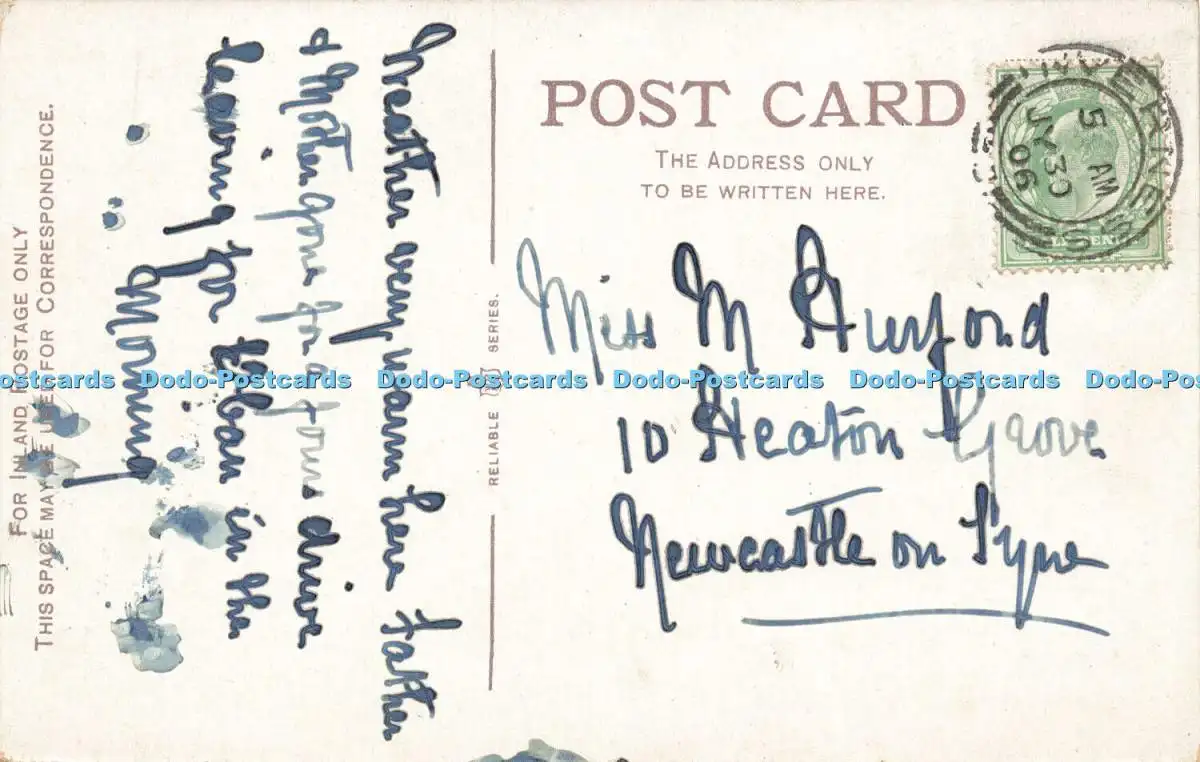 POST CARD
THE ADDRESS ONLY
TO BE WRITTEN HERE.
FOR INLAND POSTAGE ONLY
THIS SPACE MAY BE USED FOR CORRESPONDENCE.
Weather very warm here Father
& Mother gone for a four drive
leaving for Oban in the
Morning
RELIABLE SERIES.
INVERNESS
5 AM
JY 30
06
HALFPENNY
Miss M Hurford
10 Heaton Grove
Newcastle on Tyne
Dodo-Postcards Dodo-Postcards Dodo-Postcards Dodo-Postcards Dodo-Postcards Dodo-Postcards